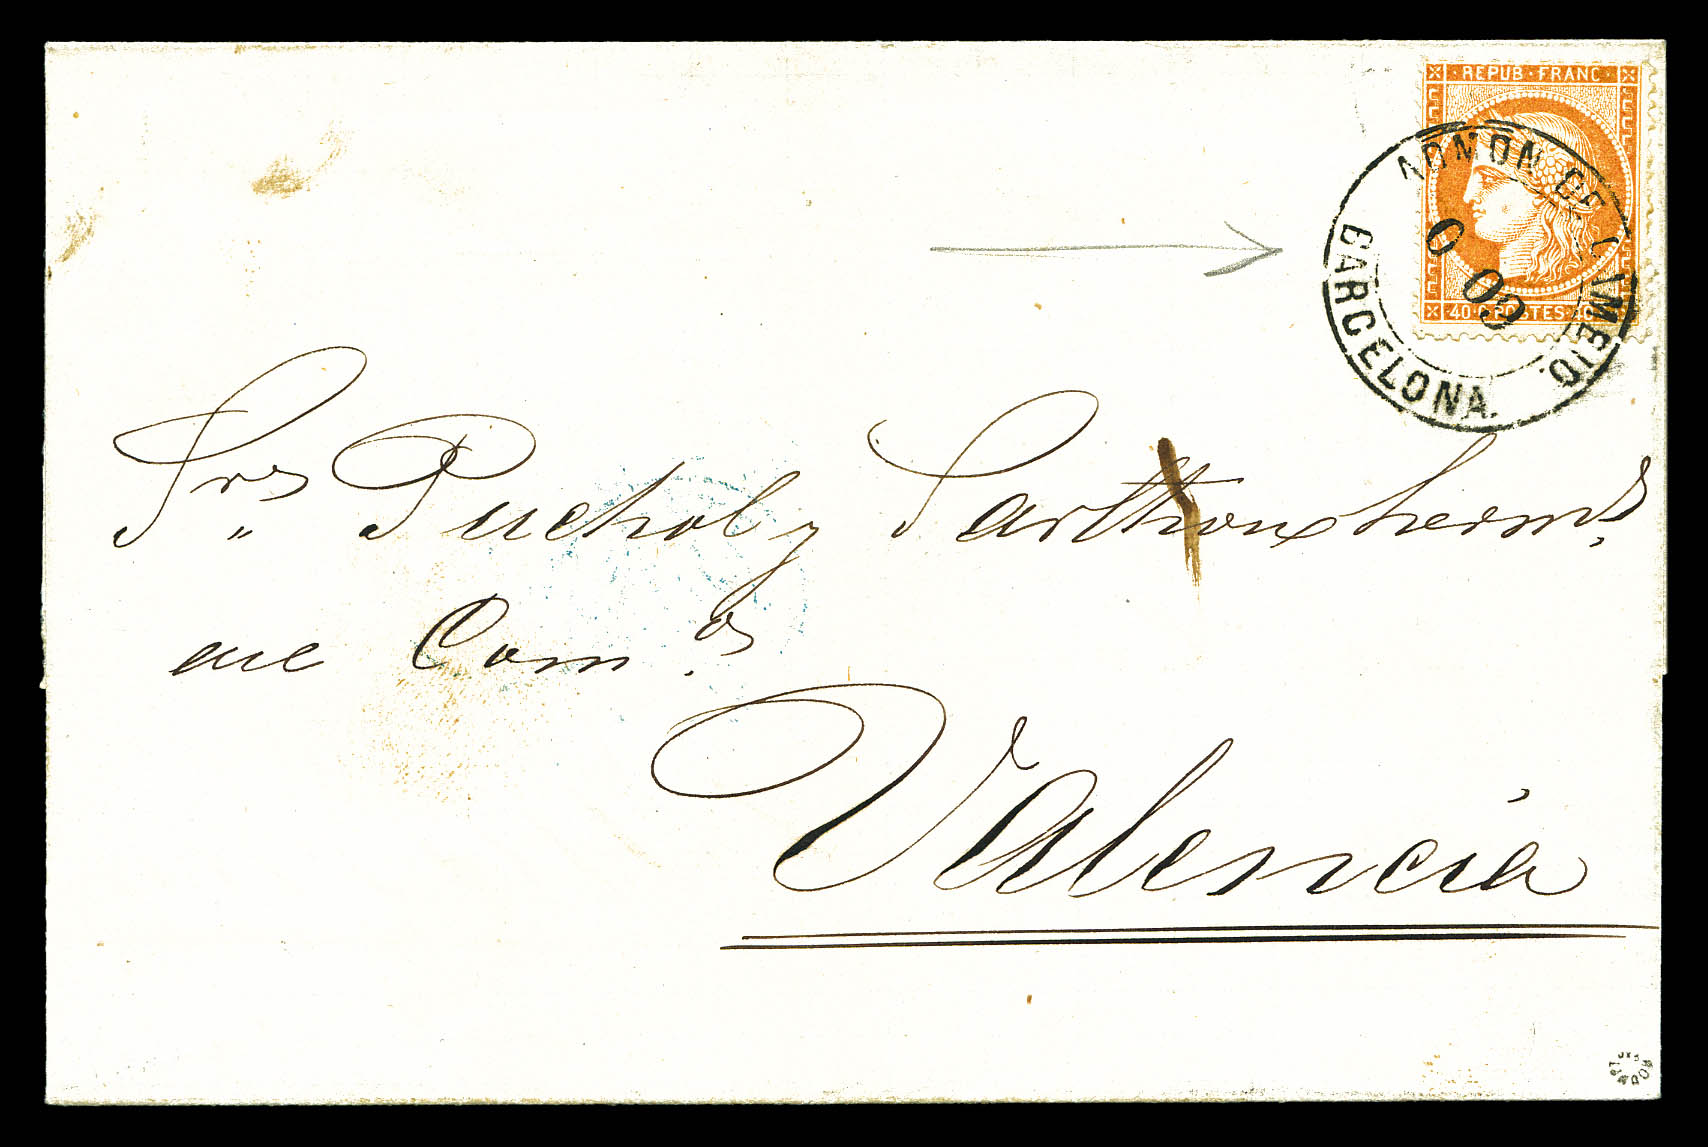 REPUB · FRANC
40 · C · POSTES · 40
ADMON DE CAMBIO.
BARCELONA.
0 09
Srs Puchol y Sarthou herms
me Com.os
Valencia